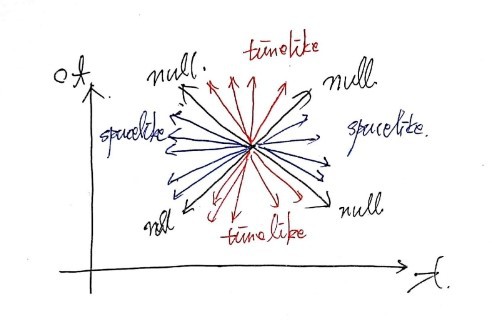 timelike
ct
null.
null.
spacelike
spacelike.
null
null
timelike